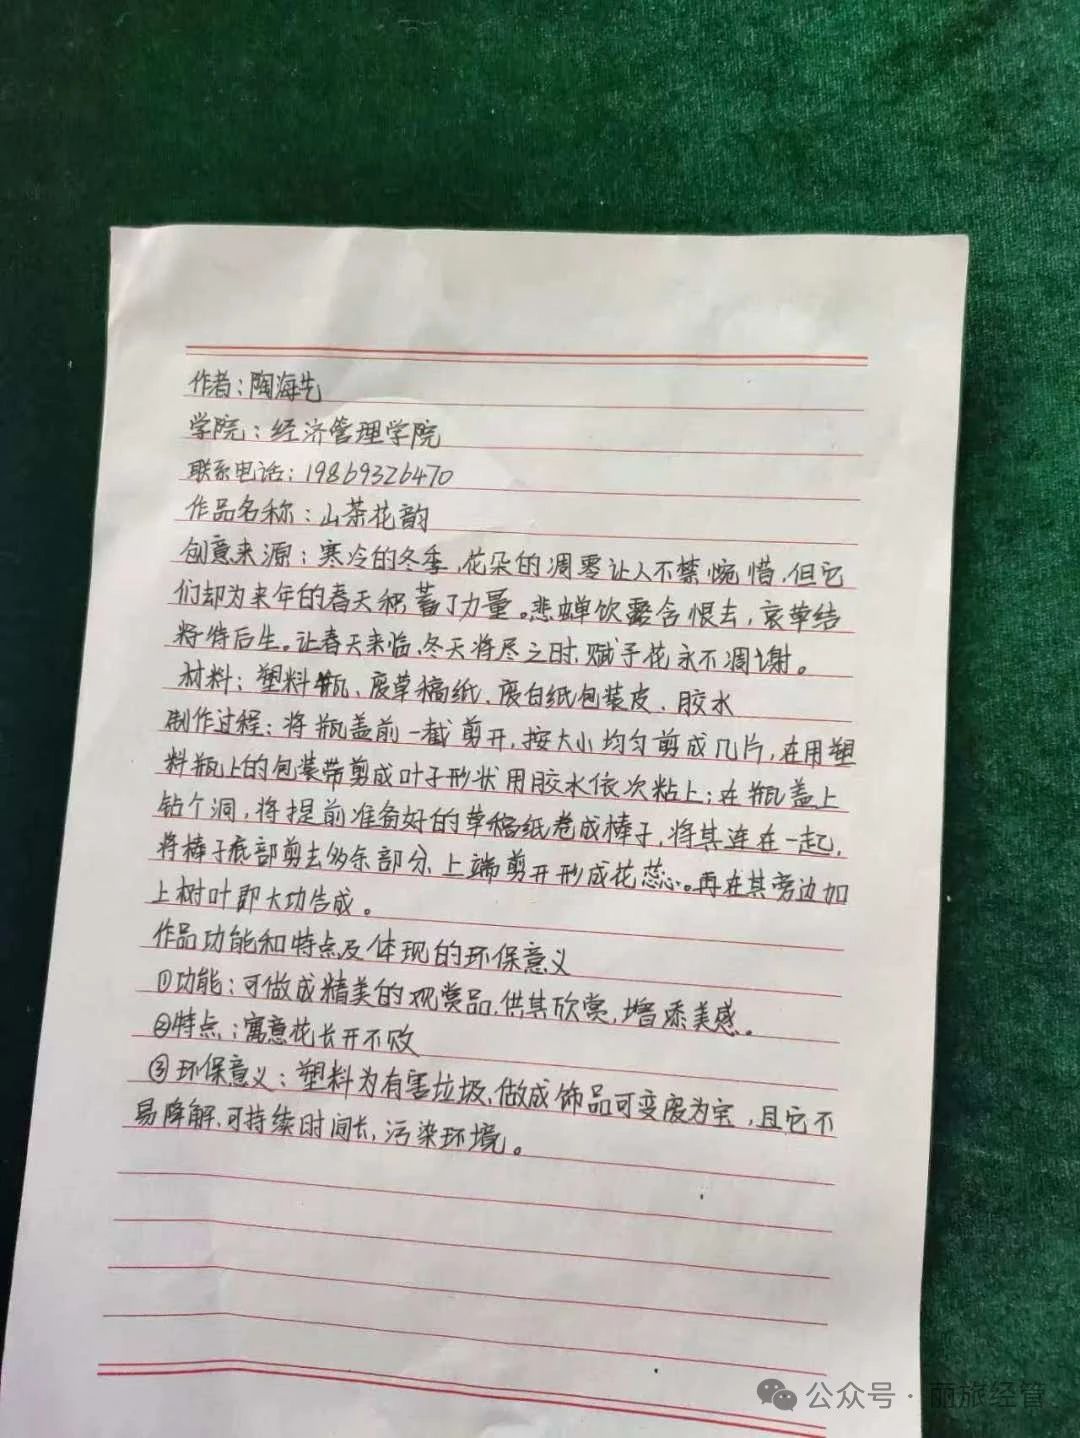 作者：陶海先
学院：经济管理学院
联系电话：19869326470
作品名称：山茶花韵
创意来源：寒冷的冬季，花朵的凋零让人不禁惋惜，但它
们却为来年的春天积蓄了力量。悲蝉饮露含恨去，哀草结
籽待后生。让春天来临、冬天将尽之时，赋予花永不凋谢。
材料：塑料瓶、废草稿纸、废白纸包装皮、胶水
制作过程：将瓶盖前一截剪开，按大小均匀剪成几片，在用塑
料瓶上的包装带剪成叶子形状用胶水依次粘上；在瓶盖上
钻个洞，将提前准备好的草稿纸卷成棒子，将其连在一起，
将棒子底部剪去多余部分、上端剪开形成花蕊。再在其旁边加
上树叶即大功告成。
作品功能和特点及体现的环保意义
①功能：可做成精美的观赏品，供其欣赏，增添美感。
②特点：寓意花长开不败
③环保意义：塑料为有害垃圾，做成饰品可变废为宝，且它不
易降解，可持续时间长，污染环境。
公众号·丽旅经管